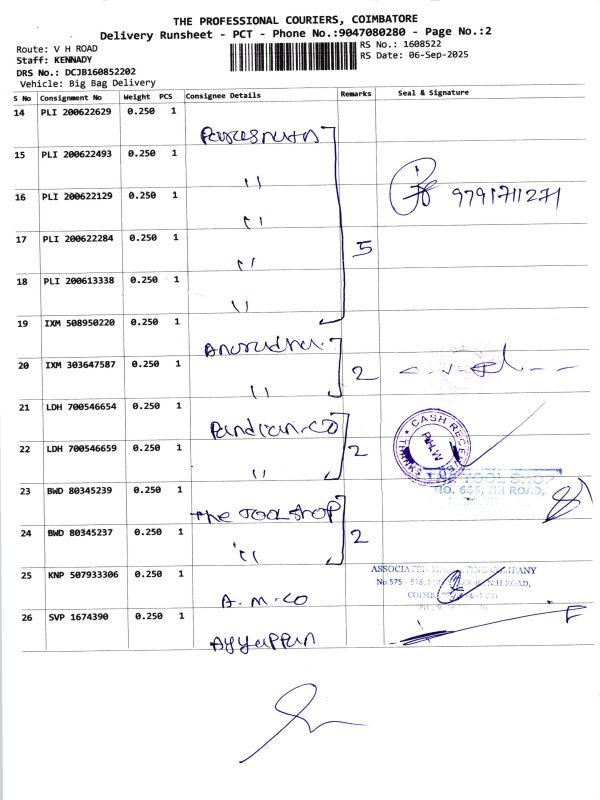 THE PROFESSIONAL COURIERS, COIMBATORE
Delivery Runsheet - PCT - Phone No.:9047080280 - Page No.:2
Route: V H ROAD
RS No.: 1608522
Staff: KENNADY
RS Date: 06-Sep-2025
DRS No.: DCJB160852202
Vehicle: Big Bag Delivery
S No Consignment No Weight PCS Consignee Details Remarks Seal & Signature
14 PLI 200622629 0.250 1
15 PLI 200622493 0.250 1 "
16 PLI 200622129 0.250 1 " 9791711271
17 PLI 200622284 0.250 1 " 5
18 PLI 200613338 0.250 1 "
19 IXM 508950220 0.250 1
20 IXM 303647587 0.250 1 " 2
21 LDH 700546654 0.250 1 Pandian.CO
CASH RECEIVED
THANKS
22 LDH 700546659 0.250 1 " 2
THE TOOL SHOP
NO. 605, NH ROAD,
23 BWD 80345239 0.250 1 The TOOL SHOP
24 BWD 80345237 0.250 1 " 2
25 KNP 507933306 0.250 1 A.M.CO
ASSOCIATED COMPANY
No.575 - 578, N.H.ROAD,
26 SVP 1674390 0.250 1 Ayyappan